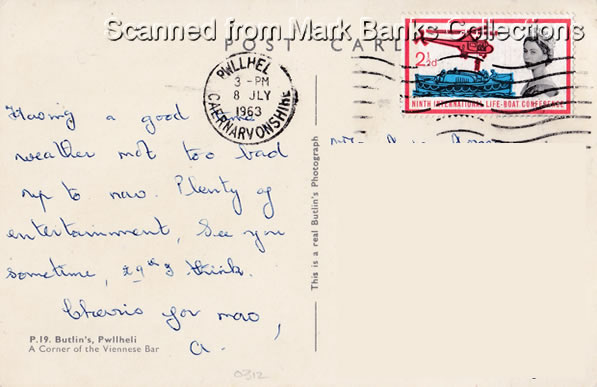 Scanned from Mark Banks Collections
POST CARD
PWLLHELI
3 - PM
8 JLY
1963
CAERNARVONSHIRE
2½d
NINTH INTERNATIONAL LIFE-BOAT CONFERENCE
Having a good
weather not too bad
up to now. Plenty of
entertainment, See you
sometime, 29th I think.
Cheerio for now,
A.
This is a real Butlin's Photograph
P.19. Butlin's, Pwllheli
A Corner of the Viennese Bar
0312